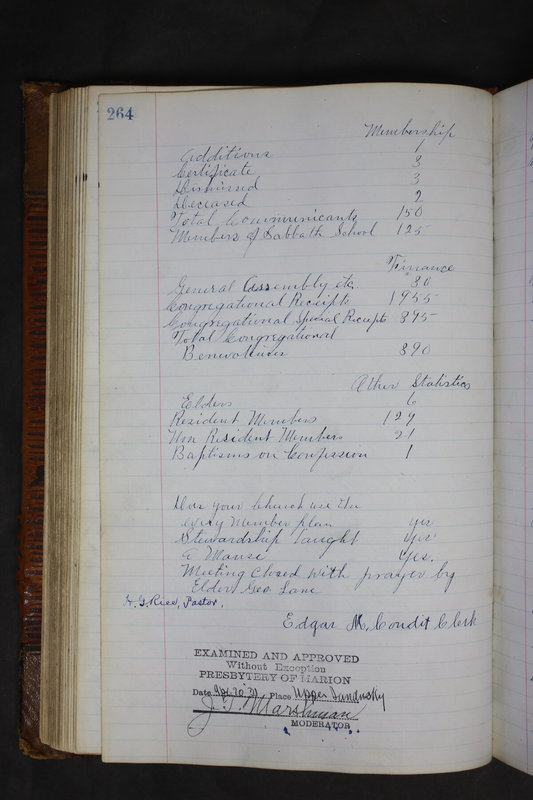 264
Membership
Additions 1
Certificate 3
Dismissed 3
Deceased 2
Total Communicants 150
Members of Sabbath School 125
Finance
General Assembly etc. 80
Congregational Receipts 1955
Congregational Special Receipts 895
Total Congregational
Benevolences 890
Other Statistics
Elders 6
Resident Members 129
Non Resident Members 21
Baptisms on Confession 1
Does your Church use the
every Member plan yes
Stewardship Taught yes
A Manse Yes.
Meeting Closed with prayer by
Elder Geo Lane
H. G. Rice, Pastor.
Edgar M. Condit Clerk
EXAMINED AND APPROVED
Without Exception
PRESBYTERY OF MARION
Date Apr. 20 Place Upper Sandusky
Marshman
MODERATOR